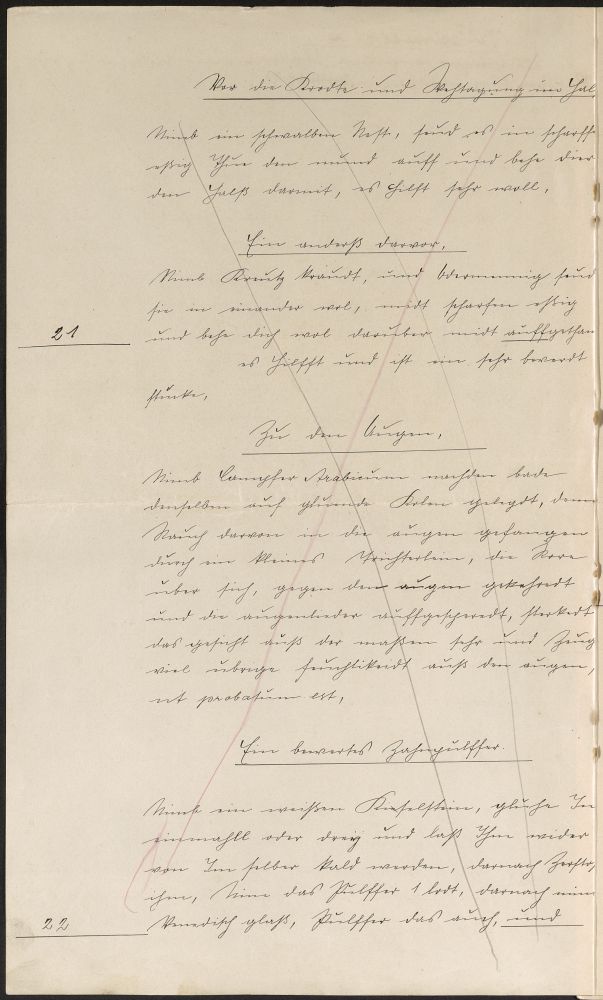 Vor die Krodte und Wehtagung im Hal
Nimb ein schwalben Nest, seud es in scharffe
eßig Thue den mund auff und behe dier
den Halß darmit, es Hilft sehr woll,
Ein anderß darvor,
Nimb Kreutz kraudt, und Odermennig seud
sie in einander wol, midt scharfen eßig
21
und behe dich wol daruber midt auffgethan
es Hilfft und ist ein sehr bewerdt
stucke,
Zu den Augen,
Nimb Campfer Arabicum nachdem bade
denselben auf gluende Kolen gelegdt, denn
Rauch darvon in die augen gefangen
durch ein kleines Trichterlein, die Rore
uber sich, gegen den augen gekehredt
und die augenlieder auffgesperedt, sterkedt
das gesicht auß der maßen sehr und Zeug
viel ubrige feuchtikeidt auß den augen,
ut probatum est,
Ein bewertes Zahnpulffer.
Nimb ein weißen Kieselstein, gluhe In
einmahll oder drey und laß Ihm wider
von Im selber kald werden, darnach Zersto,
ihm, Nim das Pulffer 1 lodt, darnach nim
22
Venedisch glaß, Pulffer das auch, und